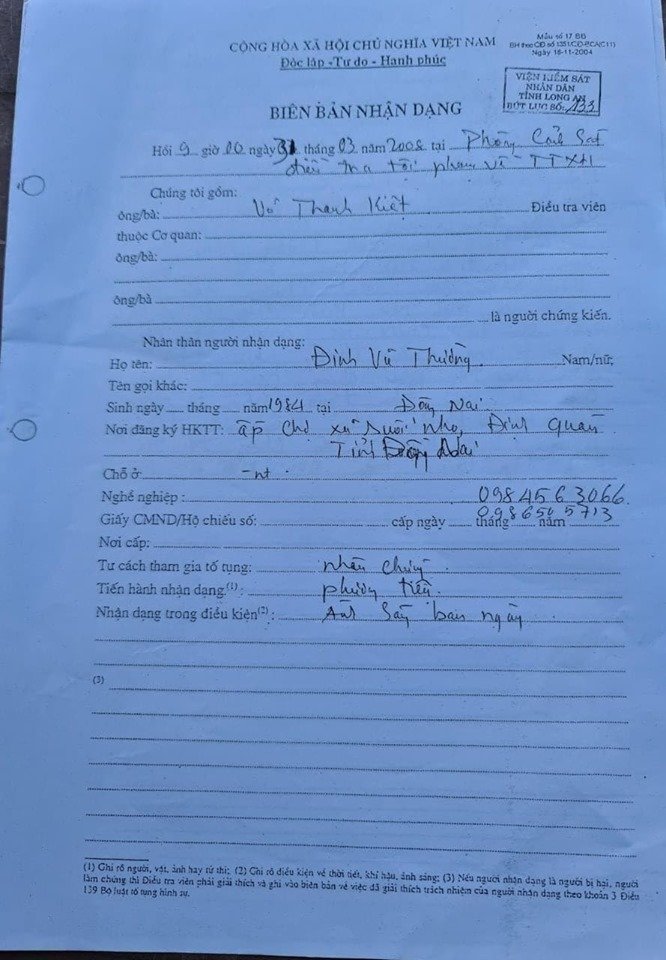 Mẫu số 17 BĐ
BH theo CĐ số 1351/CĐ-BCA(C11)
Ngày 18-11-2004
CỘNG HÒA XÃ HỘI CHỦ NGHĨA VIỆT NAM
Độc lập -Tự do - Hạnh phúc
VIỆN KIỂM SÁT
NHÂN DÂN
TỈNH LONG AN
BÚT LỤC SỐ: 133
BIÊN BẢN NHẬN DẠNG
Hồi 9 giờ 00 ngày 31 tháng 03 năm 2008 tại Phòng Cảnh Sát
điều tra tội phạm về TTXH
Chúng tôi gồm:
ông/bà: Võ Thanh Kiệt Điều tra viên
thuộc Cơ quan:
ông/bà:
ông/bà
là người chứng kiến.
Nhân thân người nhận dạng:
Họ tên: Đinh Vũ Thường Nam/nữ;
Tên gọi khác:
Sinh ngày tháng năm 1984 tại Đồng Nai
Nơi đăng ký HKTT: ấp Chợ xã Suối Nho, Định quán
Tỉnh Đồng Nai
Chỗ ở -nt-
Nghề nghiệp : 0984563066
0986505713
Giấy CMND/Hộ chiếu số: cấp ngày tháng năm
Nơi cấp:
Tư cách tham gia tố tụng: nhân chứng
Tiến hành nhận dạng(1) : phương tiện
Nhận dạng trong điều kiện(2) : Ánh sáng ban ngày
(3)
(1) Ghi rõ người, vật, ảnh hay tử thi; (2) Ghi rõ điều kiện về thời tiết, khí hậu, ánh sáng; (3) Nếu người nhận dạng là người bị hại, người
làm chứng thì Điều tra viên phải giải thích và ghi vào biên bản về việc đã giải thích trách nhiệm của người nhận dạng theo khoản 3 Điều
139 Bộ luật tố tụng hình sự.